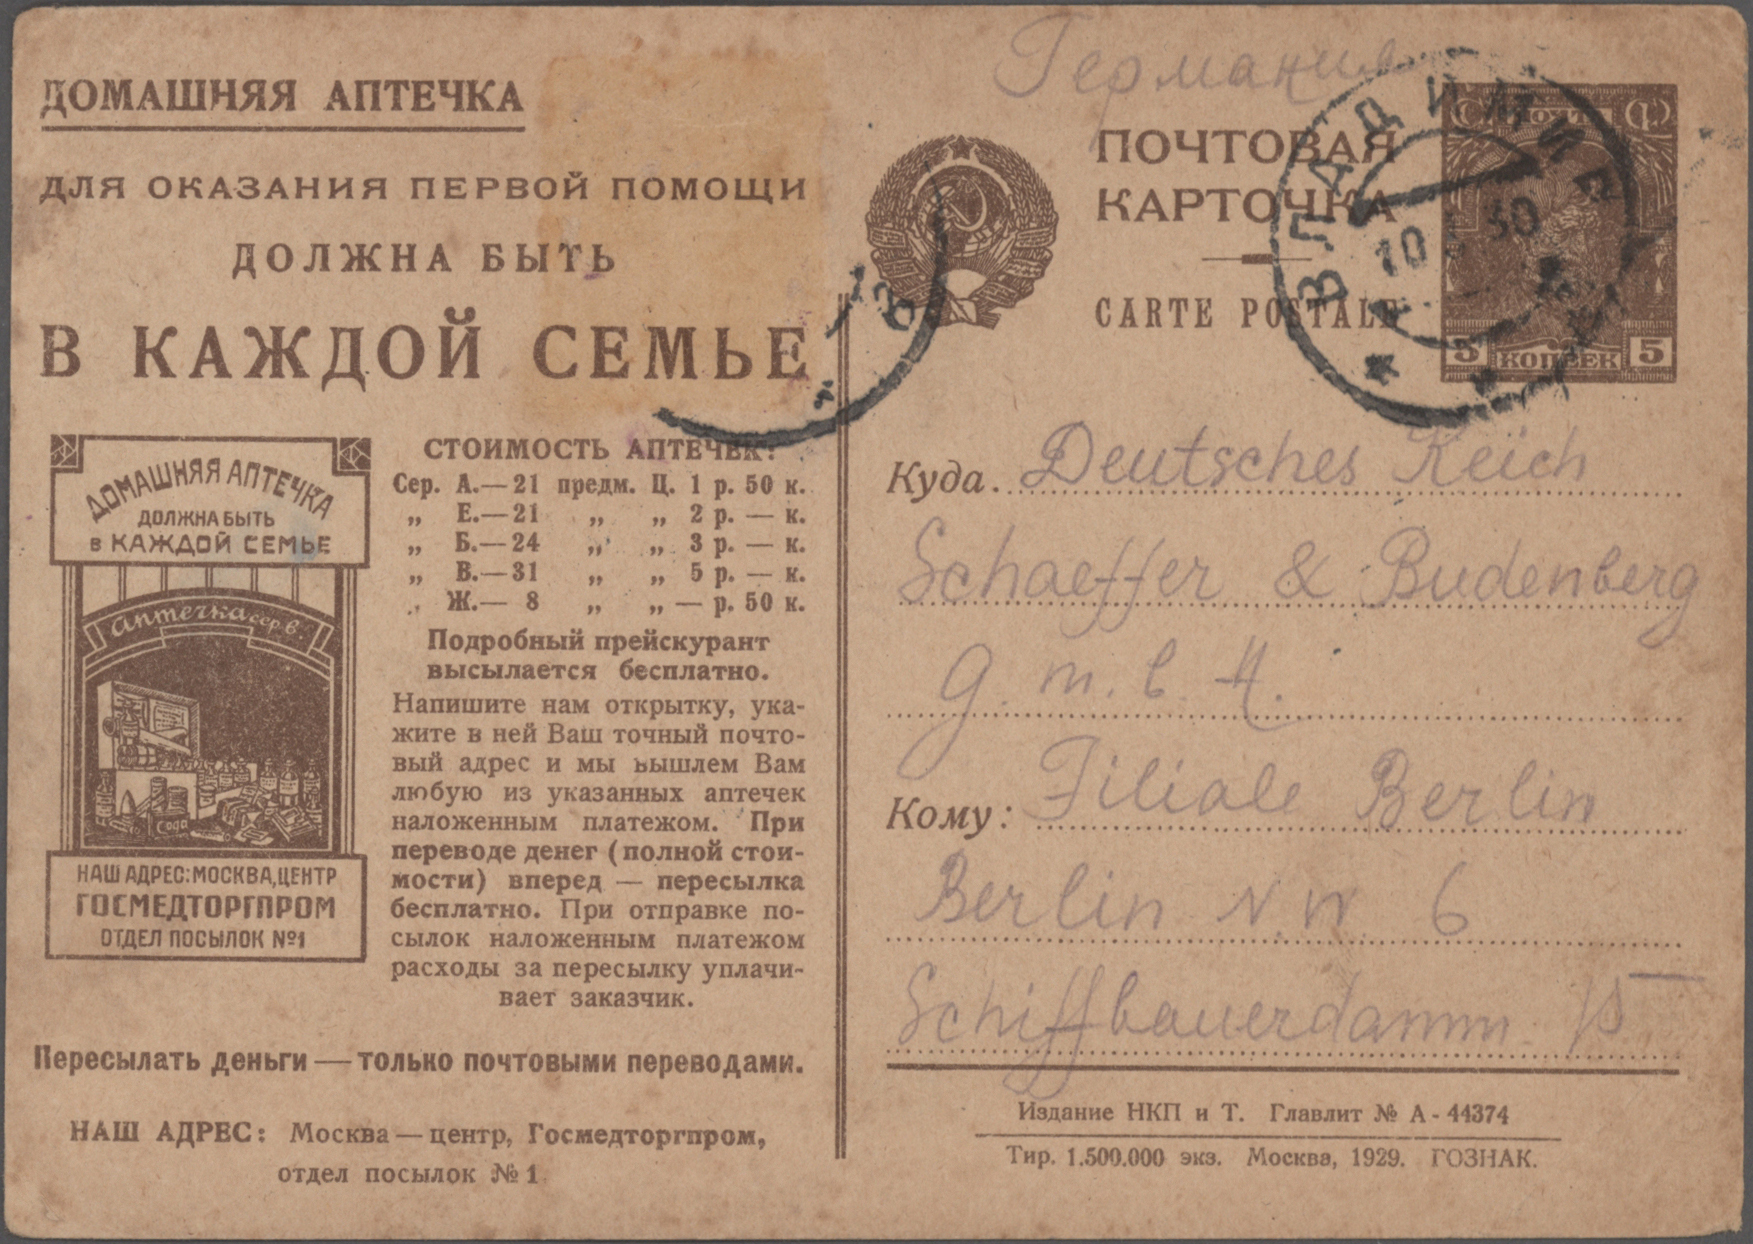 ДОМАШНЯЯ АПТЕЧКА
ДЛЯ ОКАЗАНИЯ ПЕРВОЙ ПОМОЩИ
ДОЛЖНА БЫТЬ
В КАЖДОЙ СЕМЬЕ
ДОМАШНЯЯ АПТЕЧКА
ДОЛЖНА БЫТЬ
в КАЖДОЙ СЕМЬЕ
Аптечка сер в.
Сода
НАШ АДРЕС: МОСКВА, ЦЕНТР
ГОСМЕДТОРГПРОМ
ОТДЕЛ ПОСЫЛОК №1
СТОИМОСТЬ АПТЕЧЕК:
Сер. А.—21 предм. Ц. 1 р. 50 к.
„ Е.—21 „ „ 2 р. — к.
„ Б.—24 „ „ 3 р. — к.
„ В.—31 „ „ 5 р. — к.
„ Ж.— 8 „ „ — р. 50 к.
Подробный прейскурант
высылается бесплатно.
Напишите нам открытку, ука-
жите в ней Ваш точный почто-
вый адрес и мы вышлем Вам
любую из указанных аптечек
наложенным платежом. При
переводе денег (полной стои-
мости) вперед — пересылка
бесплатно. При отправке по-
сылок наложенным платежом
расходы за пересылку уплачи-
вает заказчик.
Пересылать деньги — только почтовыми переводами.
НАШ АДРЕС: Москва — центр, Госмедторгпром,
отдел посылок № 1
Германия
ПОЧТОВАЯ
КАРТОЧКА
CARTE POSTALE
ПОЧТА
5 КОПЕЕК 5
ВЛАДИМИР
10 30
Куда. Deutsches Reich
Schaeffer & Budenberg
G. m. b. H.
Кому: Filiale Berlin
Berlin N.W 6
Schiffbauerdamm 15
Издание НКП и Т. Главлит № А - 44374
Тир. 1.500.000 экз. Москва, 1929. ГОЗНАК.